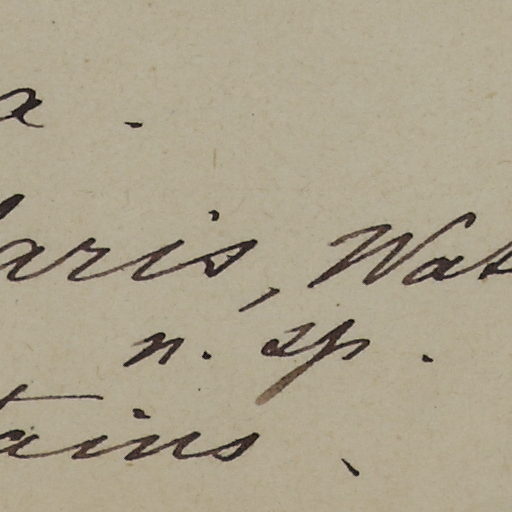 a.
laris, Wat
n. sp.
tains.